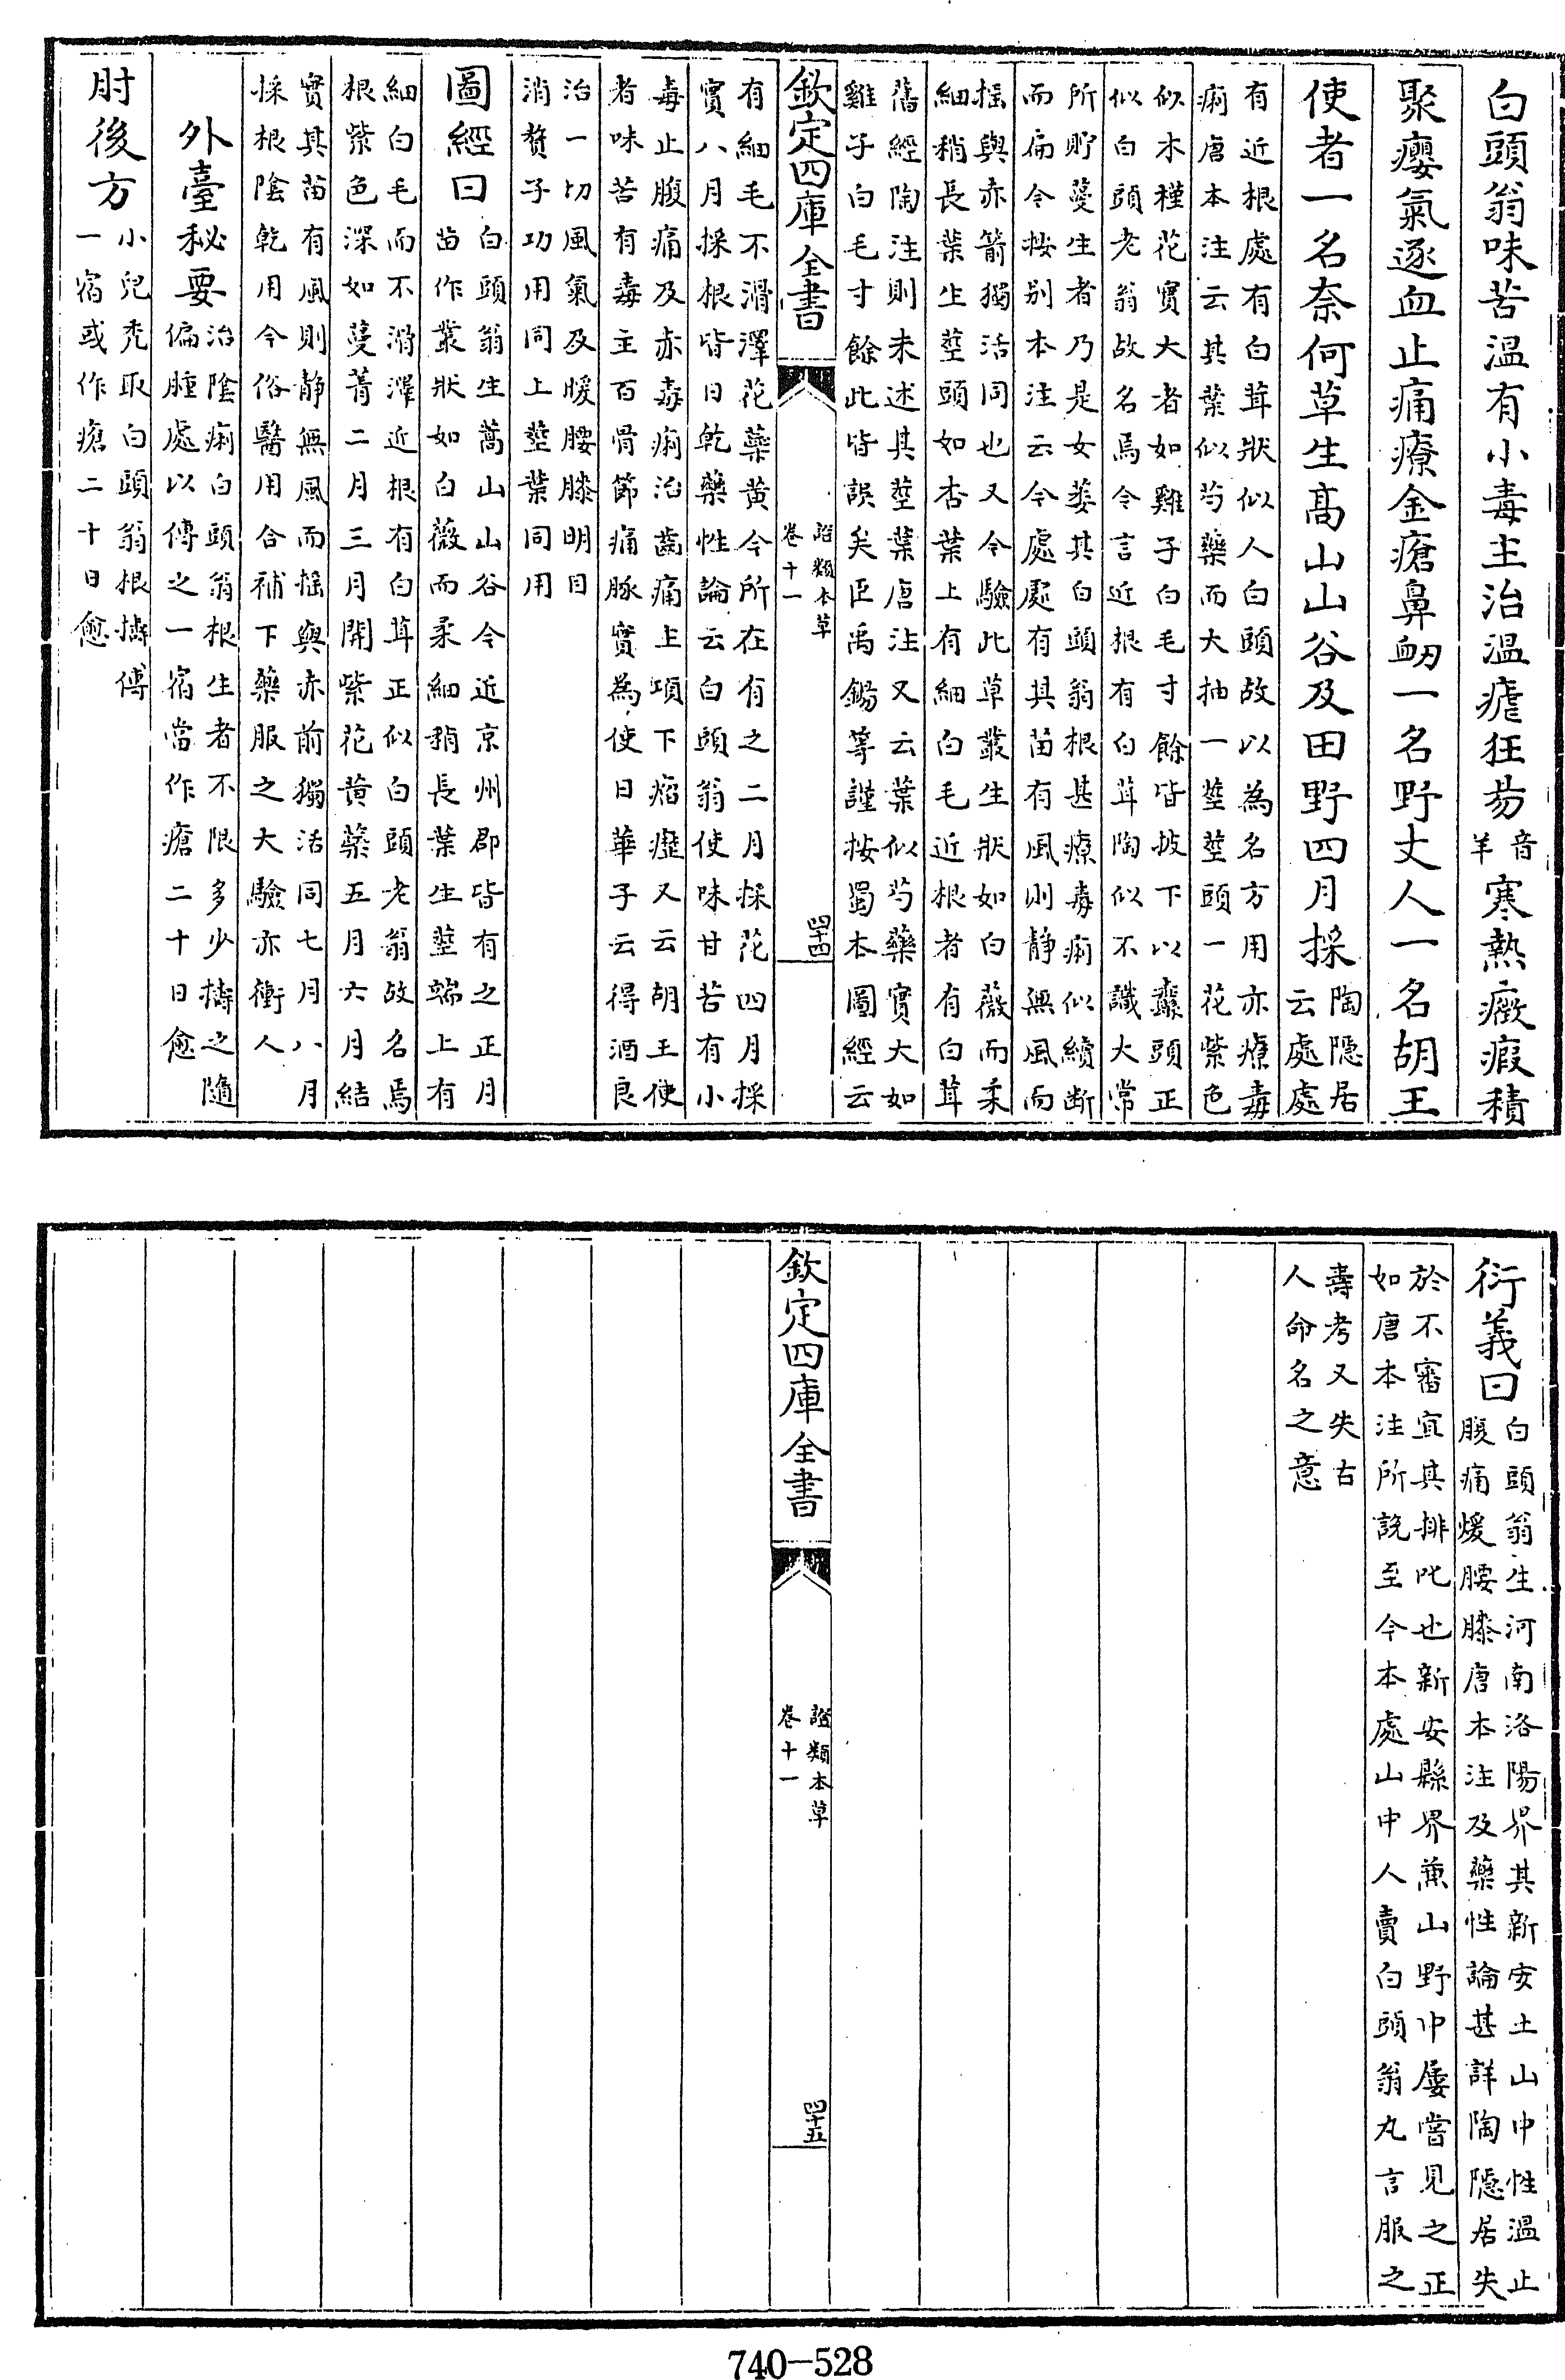 白頭翁味苦溫有小毒主治溫瘧狂昜音羊寒熱癥瘕積
聚癭氣逐血止痛療金瘡鼻衂一名野丈人一名胡王
使者一名奈何草生髙山山谷及田野四月採陶隱居
云處處
有近根處有白茸狀似人白頭故以為名方用亦療毒
痢唐本注云其葉似芍藥而大抽一莖莖頭一花紫色
似木槿花實大者如雞子白毛寸餘皆披下以纛頭正
似白頭老翁故名焉今言近根有白茸陶似不識大常
所貯蔓生者乃是女萎其白頭翁根甚療毒痢似續斷
而扁今按别本注云今處處有其苗有風則静無風而
揺與赤箭獨活同也又今驗此草叢生狀如白薇而柔
細稍長葉生莖頭如杏葉上有細白毛近根者有白茸
舊經陶注則未述其莖葉唐注又云葉似芍藥實大如
雞子白毛寸餘此皆誤矣臣禹錫等謹按蜀本圖經云
欽定四庫全書
證類本草
卷十一
四十四
有細毛不滑澤花蘂黄今所在有之二月採花四月採
實八月採根皆日乾藥性論云白頭翁使味甘苦有小
毒止腹痛及赤毒痢治齒痛主項下瘤癧又云胡王使
者味苦有毒主百骨節痛豚實為使日華子云得酒良
治一切風氣及暖腰膝明目
消贅子功用同上莖葉同用
圖經曰白頭翁生嵩山山谷今近京州郡皆有之正月
苗作叢狀如白薇而柔細稍長葉生莖端上有
細白毛而不滑澤近根有白茸正似白頭老翁故名焉
根紫色深如蔓菁二月三月開紫花黄蘂五月六月結
實其苗有風則静無風而揺與赤前獨活同七月八月
採根隂乾用今俗醫用合補下藥服之大驗亦衝人
外臺秘要治隂痢白頭翁根生者不限多少擣之隨
偏腫處以傅之一宿當作瘡二十日愈
肘後方小兒禿取白頭翁根擣傅
一宿或作瘡二十日愈
衍義曰白頭翁生河南洛陽界其新安土山中性溫止
腹痛煖腰膝唐本注及藥性論甚詳陶隱居失
於不審宜其排叱也新安縣界兼山野中屢嘗見之正
如唐本注所説至今本處山中人賣白頭翁丸言服之
壽考又失古
人命名之意
欽定四庫全書
證類本草
卷十一
四十五
740-528